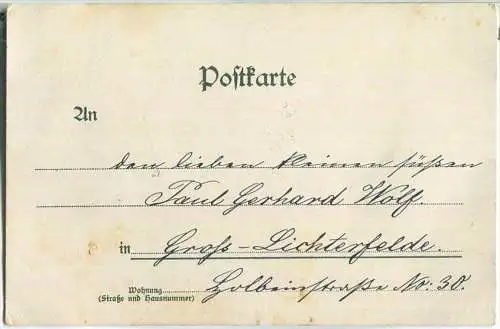 Postkarte
An
den lieben kleinen süßen
Paul Gerhard Wolf.
in Gross-Lichterfelde.
Wohnung Holbeinstraße No. 30.
(Straße und Hausnummer)